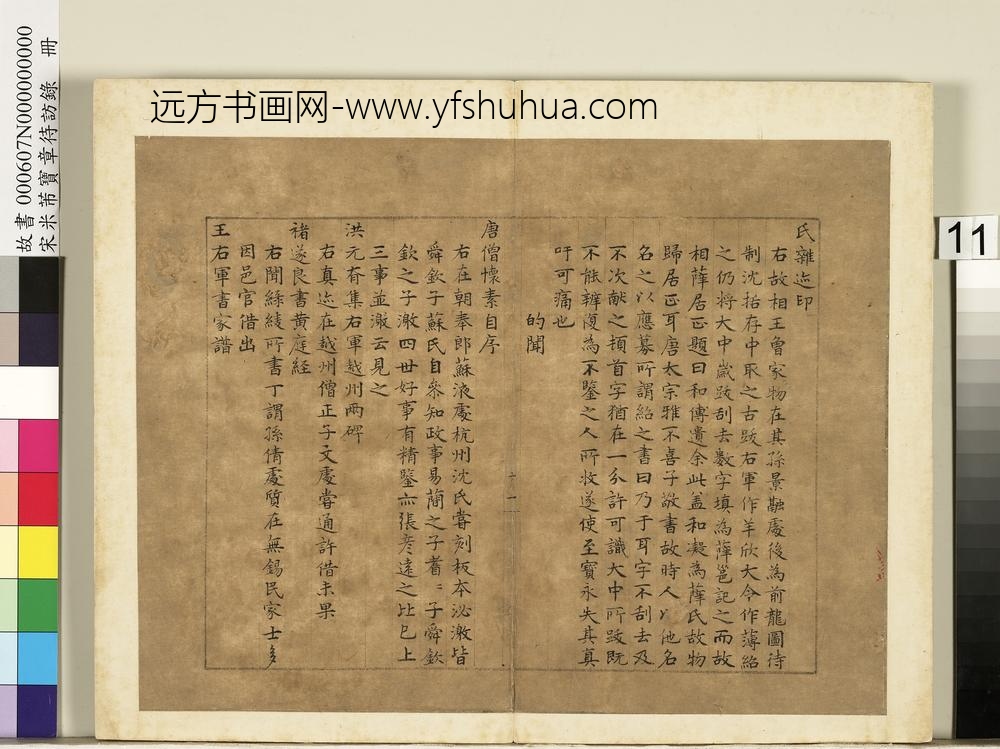 远方书画网-www.yfshuhua.com
故書000607N000000000
宋米芾寶章待訪錄 冊
11
氏雜迹印
右故相王魯家物在其孫景融處後為前龍圖待
制沈括存中取之古跋右軍作羊欣大令作薄紹
之仍將大中歲跋刮去数字填為薛邕記之而故
相薛居正題曰和傳遺余此盖和凝為薛氏故物
歸居正耳唐太宗雅不喜子敬書故時人以他名
名之以應募所謂紹之書曰乃于耳字不刮去及
不次献之頓首字猶在一分許可識大中所跋既
不能辨復為不鑒之人所收遂使至寳永失其真
吁可痛也
的聞
唐僧懷素自序
右在朝奉郎蘇液處杭州沈氏嘗刻板本泌激皆
舜欽子蘇氏自参知政事易簡之子耆〻子舜欽
欽之子激四世好事有精鑒亦張彦遠之比已上
三事並激云見之
洪元脊集右軍越州两碑
右真迹在越州僧正子文處嘗通許借未果
褚遂良書黄庭経
右聞絲綾所書丁謂孫倩處質在無錫民家士多
因邑官借出
王右軍書家譜